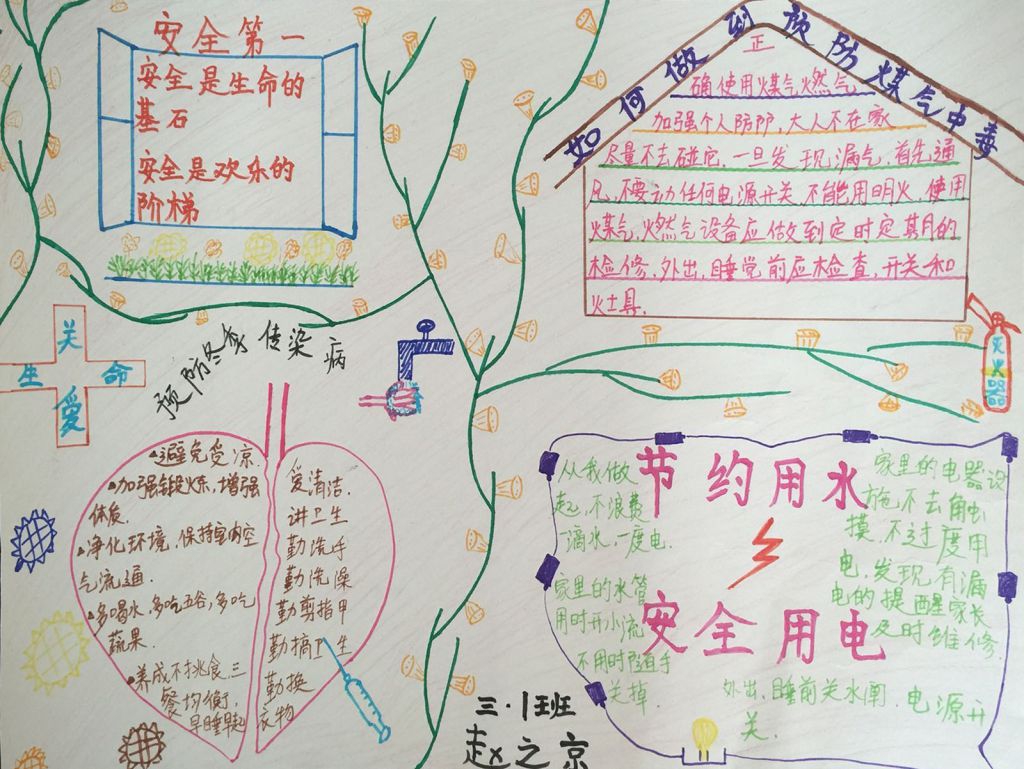 安全第一
安全是生命的
基石
安全是欢乐的
阶梯
如何做到预防煤气中毒
正
确使用煤气燃气
加强个人防护,大人不在家
尽量不去碰它,一旦发现漏气,首先通
风,不要动任何电源开关,不能用明火,使用
煤气,燃气设备应做到定时定期的
检修,外出,睡觉前应检查,开关和
灶具.
关
生命
爱
预防冬季传染病
灭火器
避免受凉.
加强锻炼,增强
体质.
净化环境,保持室内空
气流通.
多喝水,多吃五谷,多吃
蔬果.
养成不挑食,三
餐均衡,
早睡早起
爱清洁.
讲卫生
勤洗手
勤洗澡
勤剪指甲
勤搞卫生
勤换
衣物
三·1班
赵之京
节约用水
安全用电
从我做
起,不浪费
一滴水,一度电.
家里的水管
用时开小流
不用时随手
关掉
家里的电器设
施,不去触
摸,不过度用
电,发现有漏
电的提醒家长
及时维修.
外出,睡前关水闸,电源开
关.